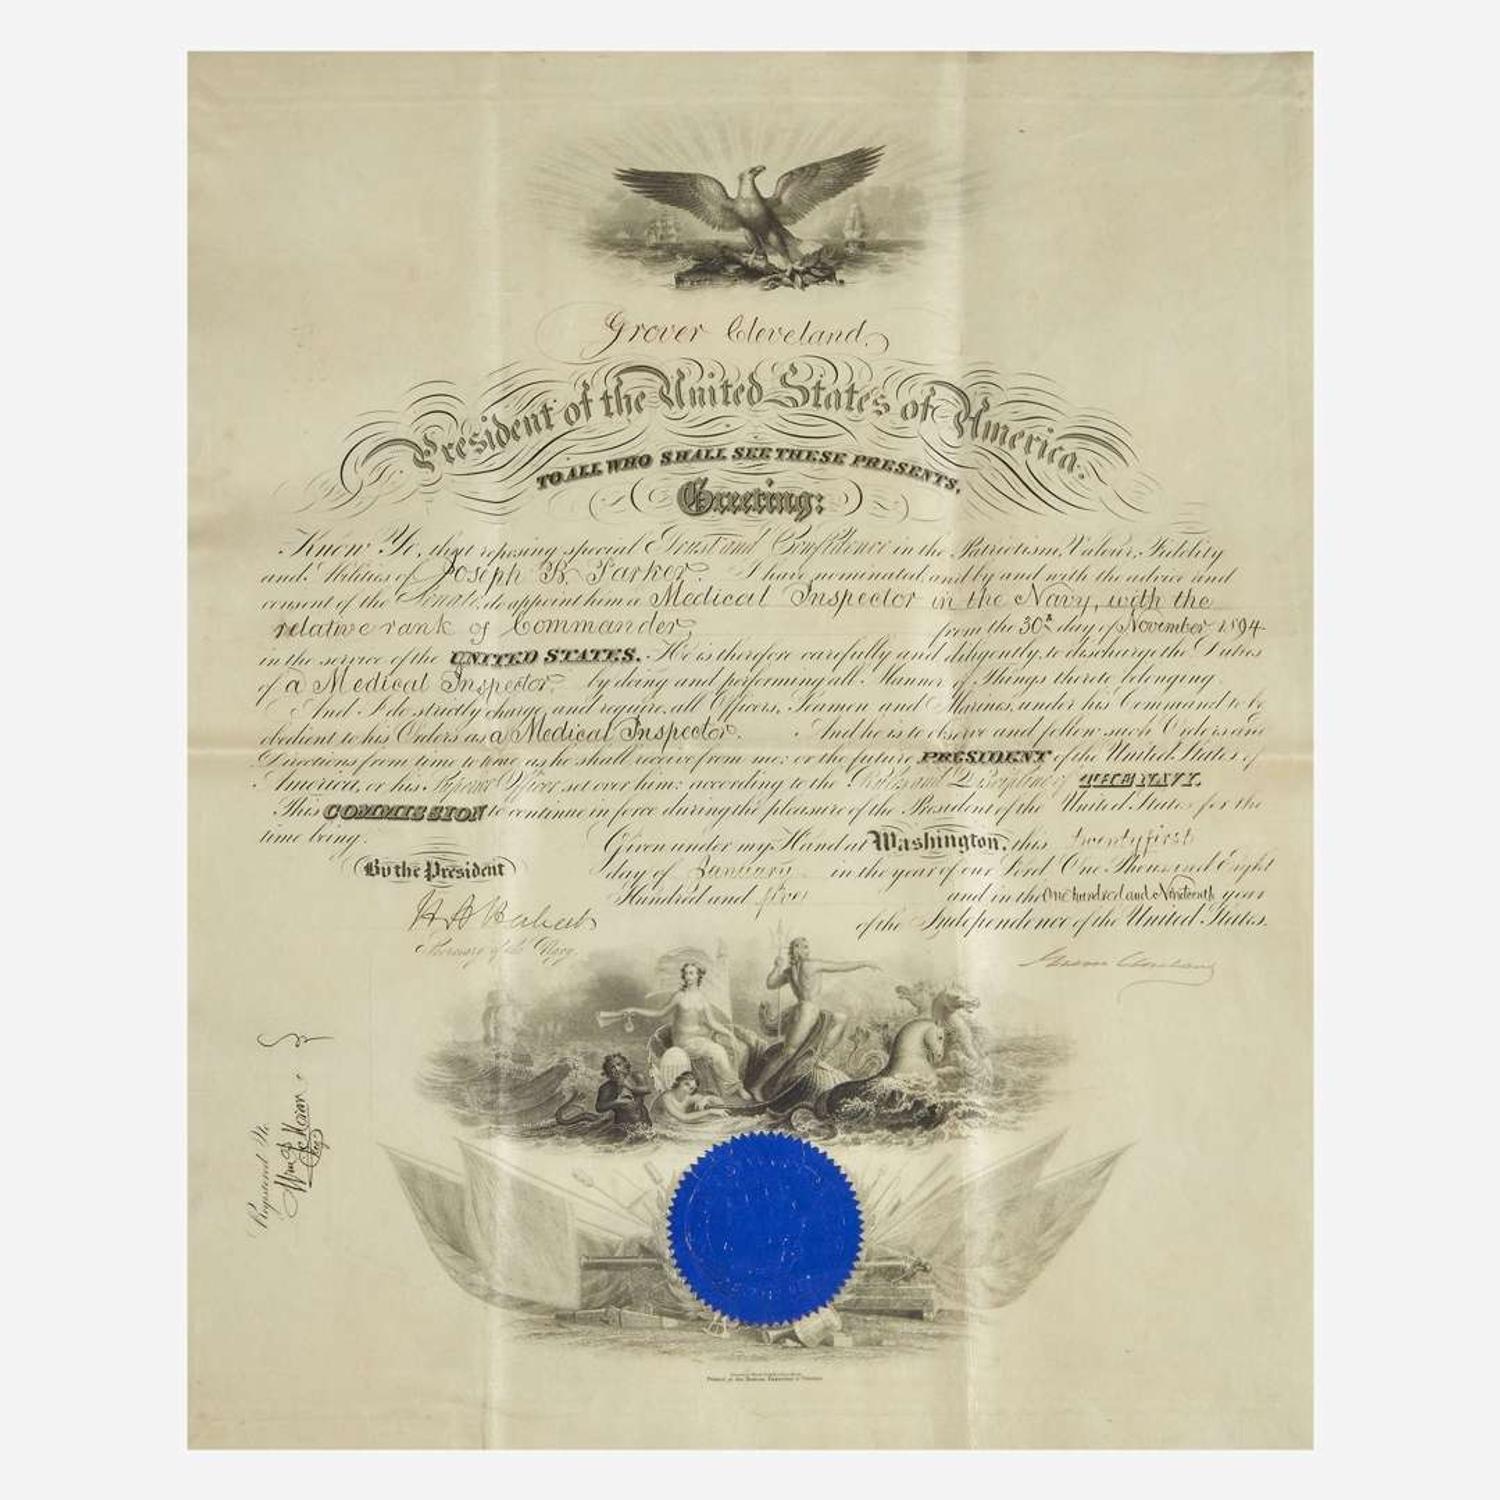 Grover Cleveland,
President of the United States of America.
TO ALL WHO SHALL SEE THESE PRESENTS,
Greeting:
Know Ye, that reposing special Trust and Confidence in the Patriotism, Valour, Fidelity
and Abilities of Joseph B. Parker. I have nominated, and by and with the advice and
consent of the Senate, do appoint him a Medical Inspector in the Navy, with the
relative rank of Commander, from the 30th day of November, 1894
in the service of the UNITED STATES. He is therefore carefully and diligently, to discharge the Duties
of a Medical Inspector by doing and performing all Manner of Things thereto belonging.
And I do strictly charge, and require, all Officers, Seamen and Marines, under his Command to be
obedient to his Orders as a Medical Inspector. And he is to observe and follow such Orders and
Directions from time to time, as he shall receive from me; or the future PRESIDENT of the United States of
America, or his Superior Officer set over him; according to the Rules and Discipline of THE NAVY.
This COMMISSION to continue in force during the pleasure of the President of the United States for the
time being.
Given under my Hand at Washington, this twenty first
By the President
day of January in the year of our Lord One Thousand Eight
Hundred and and in the One hundred and Nineteenth year
H A Herbert
of the Independence of the United States.
Secretary of the Navy.
Grover Cleveland
Registered No.